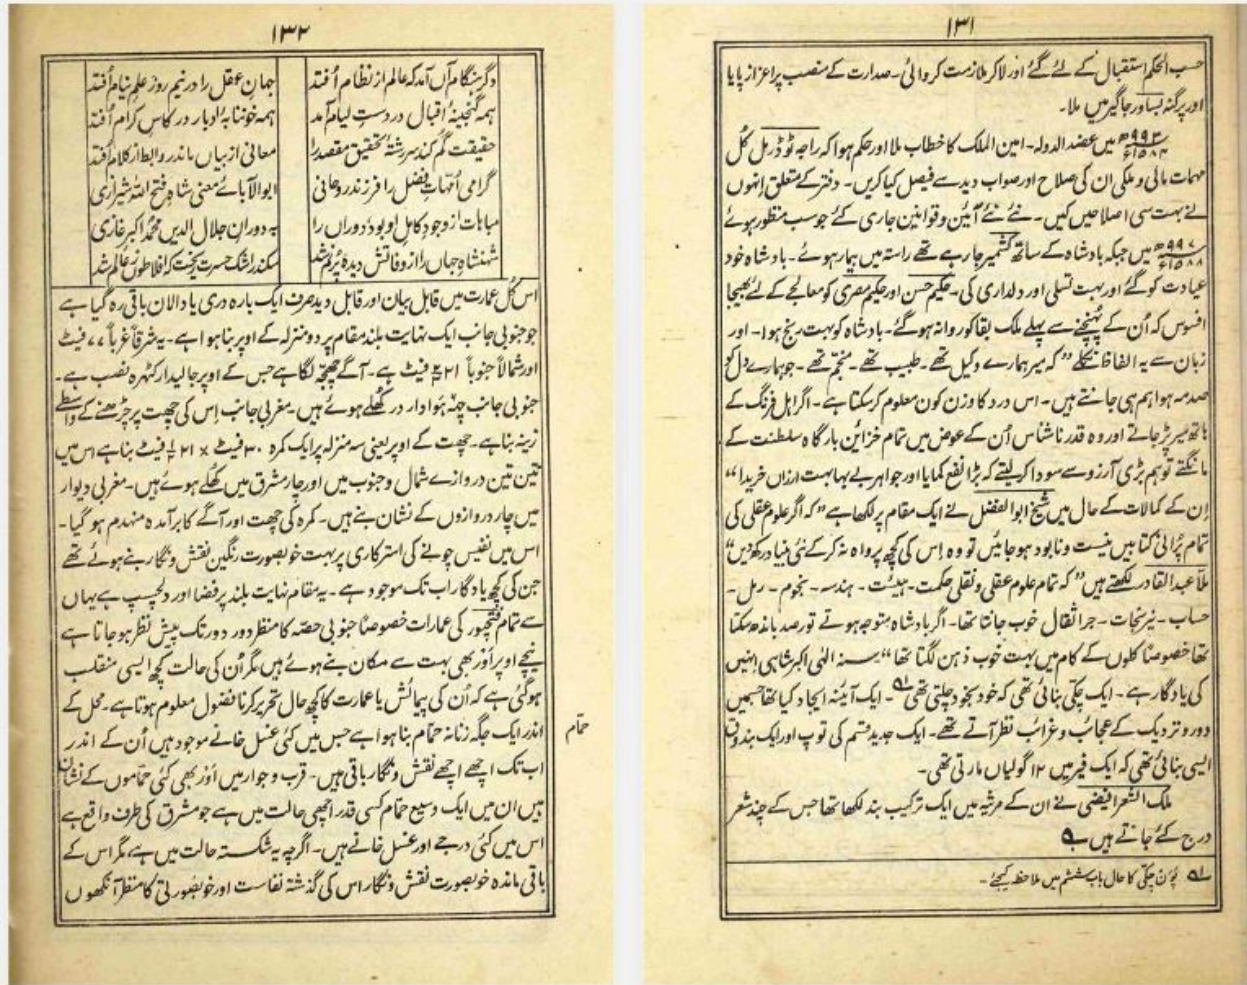 ۱۳۱
حسب الحکم استقبال کے لئے گئے اور لاکر ملازمت کروائی۔ صدارت کے منصب پر اعزاز پایا
اور پرگنہ بساور جاگیر میں ملا۔
۹۹۳ھ ۱۵۸۴ء میں عضد الدولہ۔ امین الملک کا خطاب ملا اور حکم ہوا کہ راجہ ٹوڈرمل کُل
مہمات مالی و ملکی ان کی صلاح اور صواب دید سے فیصل کیا کریں۔ دفتر کے متعلق اِنہوں
نے بہت سی اصلاحیں کیں۔ نئے نئے آئین و قوانین جاری کئے جو سب منظور ہوئے
۹۹۷ھ ۱۵۸۸ء میں جبکہ بادشاہ کے ساتھ کشمیر جا رہے تھے راستہ میں بیمار ہوئے۔ بادشاہ خود
عیادت کو گئے اور بہت تسلی اور دلداری کی۔ حکیم حسن اور حکیم مصری کو معالجے کے لئے بھیجا
افسوس کہ اُن کے پُہنچنے سے پہلے ملک بقا کو روانہ ہو گئے۔ بادشاہ کو بہت رنج ہوا۔ اور
زبان سے یہ الفاظ نکلے ”کہ میر ہمارے وکیل تھے۔ طبیب تھے۔ منجّم تھے۔ جو ہمارے دل کو
صدمہ ہوا ہم ہی جانتے ہیں۔ اس درد کا وزن کون معلوم کر سکتا ہے۔ اگر اہل فرنگ کے
ہاتھ میر پڑ جاتے اور وہ قدر ناشناس اُن کے عوض میں تمام خزائن بارگاہ سلطنت کے
مانگتے تو ہم بڑی آرزو سے سودا کر لیتے کہ بڑا نفع کمایا اور جواہر بے بہا بہت ارزاں خریدا“
اِن کے کمالات کے حال میں شیخ ابوالفضل نے ایک مقام پر لکھا ہے ”کہ اگر علوم عقلی کی
تمام پُرانی کتابیں نیست و نابود ہو جائیں تو وہ اِس کی کچھ پرواہ نہ کر کے نئی بنیاد رکھ دیں“
ملّا عبدالقادر لکھتے ہیں ”کہ تمام علوم عقلی و نقلی حکمت۔ ہیئت۔ ہندسہ۔ نجوم۔ رمل۔
حساب۔ نیرنجات۔ جراثقال خوب جانتا تھا۔ اگر بادشاہ متوجہ ہوتے تو رصد باندھ سکتا
تھا خصوصاً کلوں کے کام میں بہت خوب ذہن لگتا تھا“ سنہ الٰہی اکبر شاہی اِنہیں
کی یادگار ہے۔ ایک چکّی بنائی تھی کہ خود بخود چلتی تھی ۱؎۔ ایک آئینہ ایجاد کیا تھا جسمیں
دور و نزدیک کے عجائب و غرائب نظر آتے تھے۔ ایک جدید قسم کی توپ اور ایک بندوق
ایسی بنائی تھی کہ ایک فیر میں ۱۲ گولیاں مارتی تھی۔
ملک الشعرا فیضی نے ان کے مرثیہ میں ایک ترکیب بند لکھا تھا جس کے چند شعر
درج کئے جاتے ہیں ؎
۱؎ پَون چکّی کا حال باب ششم میں ملاحظہ کیجئے۔
۱۳۲
دگر ہنگام آں آمد کہ عالم از نظام اُفتد جہانِ عقل را در نیم روزِ علم نیام اُفتد
ہمہ گنجینۂ اقبال در دستِ لیام آمد ہمہ خونابۂ ادبار در کاسِ کرام اُفتد
حقیقت گم کند سررشتۂ تحقیق مقصد را معانی از بیاں ماند روابط از کلام اُفتد
گرامی اُمّہاتِ فضل را فرزند روحانی ابوالآبائے معنی شاہ فتح اللہ شیرازی
مباہات از وجودِ کامل او بود دوراں را بہ دورانِ جلال الدین محمد اکبر غازی
شہنشاہِ جہاں را از وفاتش دیدۂ پُرنم شد سکندر اشکِ حسرت ریخت کافلاطوں ز عالم شد
اس کُل عمارت میں قابل بیان اور قابل دید صرف ایک بارہ دری یا دالان باقی رہ گیا ہے
جو جنوبی جانب ایک نہایت بلند مقام پر دو منزلہ کے اوپر بنا ہوا ہے۔ یہ شرقاً غرباً ۷۷ فیٹ
اور شمالاً جنوباً ۲۱ فیٹ ہے۔ آگے چھجّہ لگا ہے جس کے اوپر جالیدار کٹہرہ نصب ہے۔
جنوبی جانب چند ہَوادار در کُھلے ہوئے ہیں۔ مغربی جانب اِس کی چھت پر چڑھنے کے واسطے
زینہ بنا ہے۔ چھت کے اوپر یعنی سہ منزلہ پر ایک کمرہ ۳۰ فیٹ × ۲۱ فیٹ بنا ہے اس میں
تین تین دروازے شمال و جنوب میں اور چار مشرق میں کُھلے ہوئے ہیں۔ مغربی دیوار
میں چار دروازوں کے نشان بنے ہیں۔ کمرہ کی چھت اور آگے کا برآمدہ منہدم ہو گیا۔
اس میں نفیس چونے کی استرکاری پر بہت خوبصورت رنگین نقش و نگار بنے ہوئے تھے
جن کی کچھ یادگار اب تک موجود ہے۔ یہ مقام نہایت بلند پر فضا اور دلچسپ ہے یہاں
سے تمام فتحپور کی عمارات خصوصاً جنوبی حصّہ کا منظر دور دور تک پیش نظر ہو جاتا ہے
نیچے اوپر اَور بھی بہت سے مکان بنے ہوئے ہیں مگر اُن کی حالت کچھ ایسی منقلب
ہو گئی ہے کہ اُن کی پیمائش یا عمارت کا کچھ حال تحریر کرنا فضول معلوم ہوتا ہے۔ محل کے
حمّام
اندر ایک جگہ زنانہ حمّام بنا ہوا ہے جس میں کئی غسل خانے موجود ہیں اُن کے اندر
اب تک اچھے اچھے نقش و نگار باقی ہیں۔ قرب و جوار میں اَور بھی کئی حمّاموں کے نشان
ہیں ان میں ایک وسیع حمّام کسی قدر اچھی حالت میں ہے جو مشرق کی طرف واقع ہے
اس میں کئی درجے اور غسل خانے ہیں۔ اگرچہ یہ شکستہ حالت میں ہے، مگر اس کے
باقی ماندہ خوبصورت نقش و نگار اس کی گذشتہ نفاست اور خوبصورتی کا منظر آنکھوں